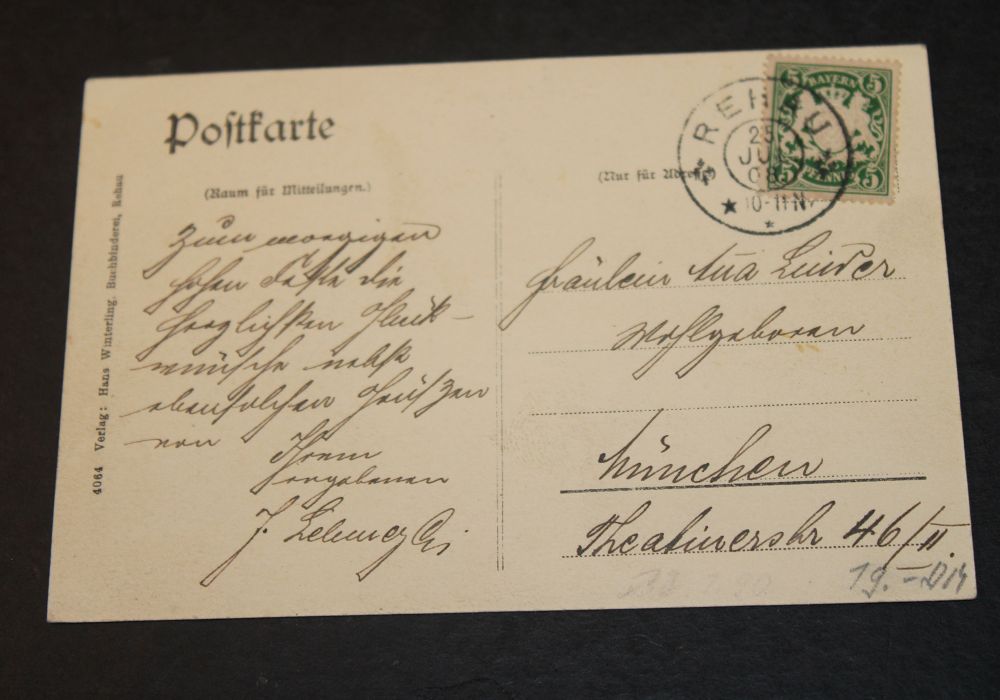 Postkarte
(Raum für Mitteilungen.)
(Nur für Adresse)
4064 Verlag: Hans Winterling, Buchbinderei, Rehau
5 BAYERN 5
5 PFENNIG 5
REHAU
25
JUL
08
10-11 N
Zum morgigen
hohen Feste die
herzlichsten Glück-
wünsche nebst
ebensolchen Grüßen
von
Ihrem
ergebenen
J.
Fräulein Linder
Wohlgeboren
München
Theatinerstr 46/II.
19.- DM